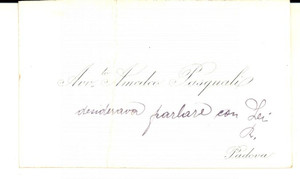 Avv.to Amedeo Pasquali
desiderava parlare con Lei
R.
Padova